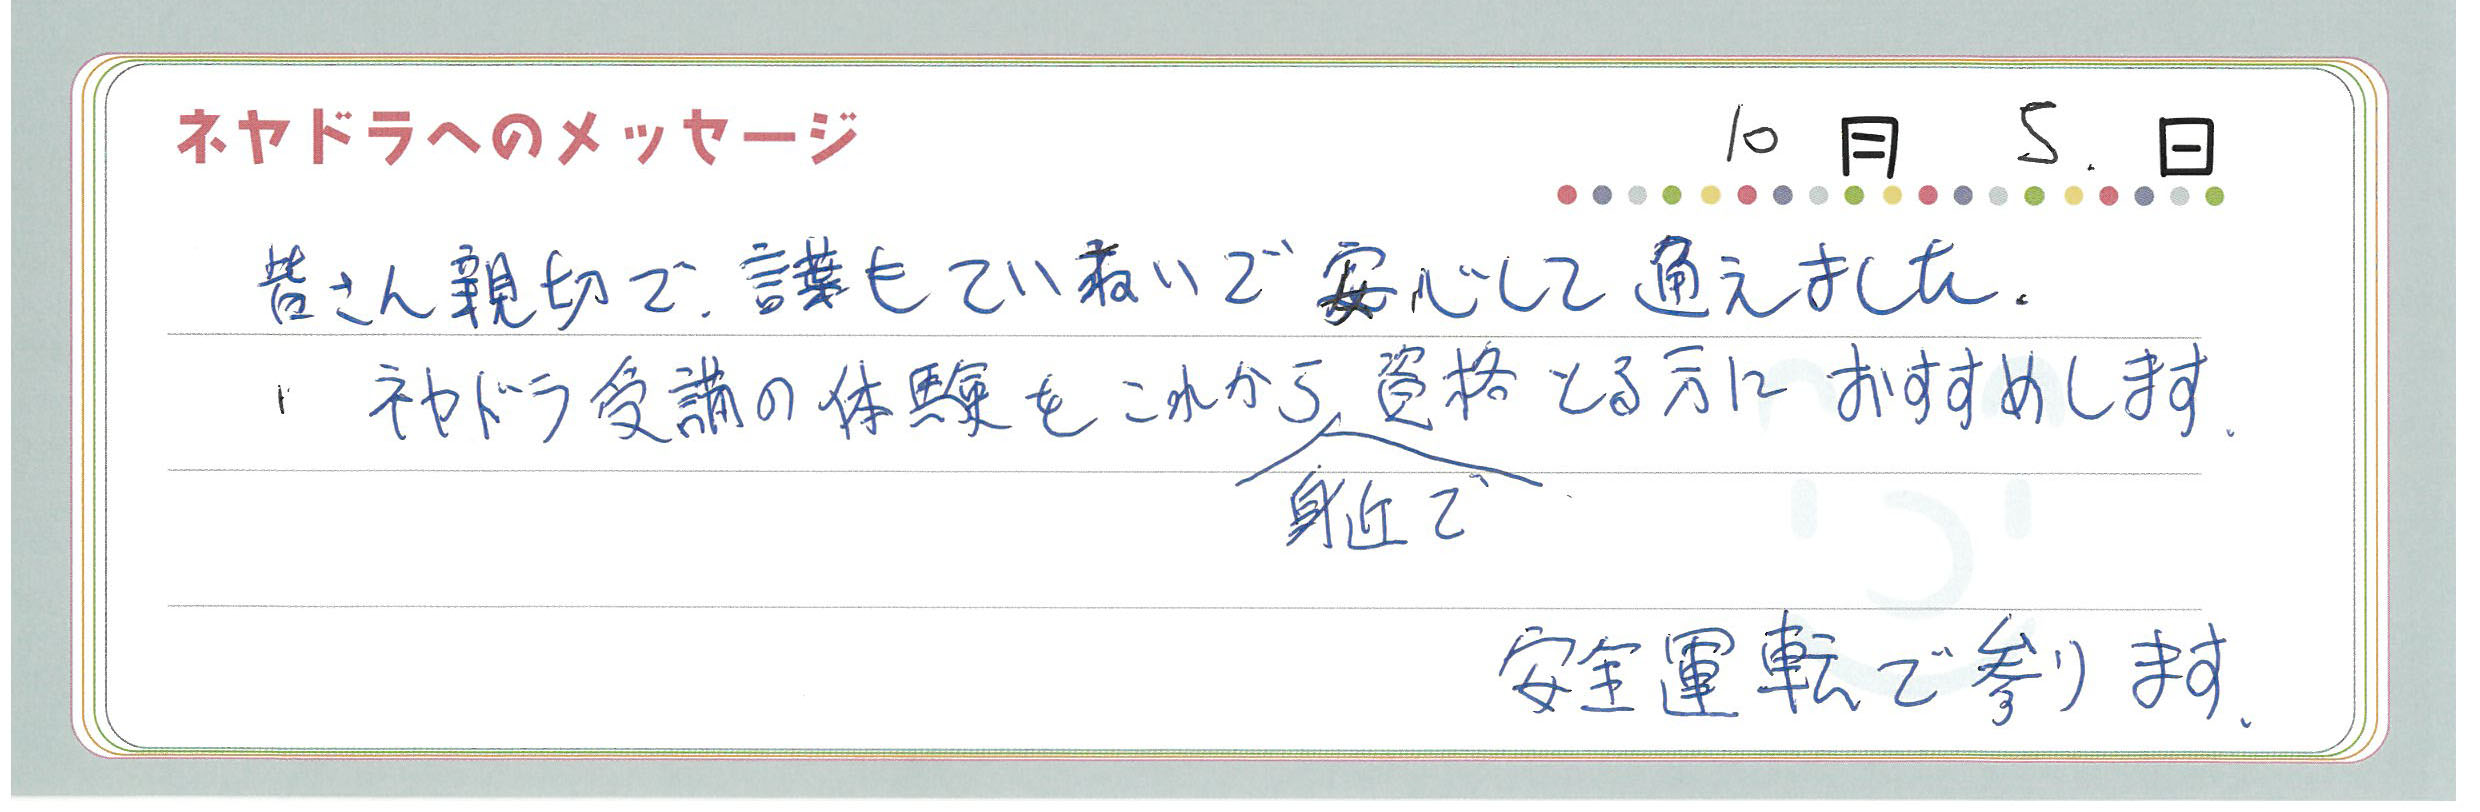 ネヤドラへのメッセージ
10月 5.日
皆さん親切で、言葉もていねいで安心して通えました.
ネヤドラ受講の体験をこれから資格とる方におすすめします.
身近で
安全運転で参ります.